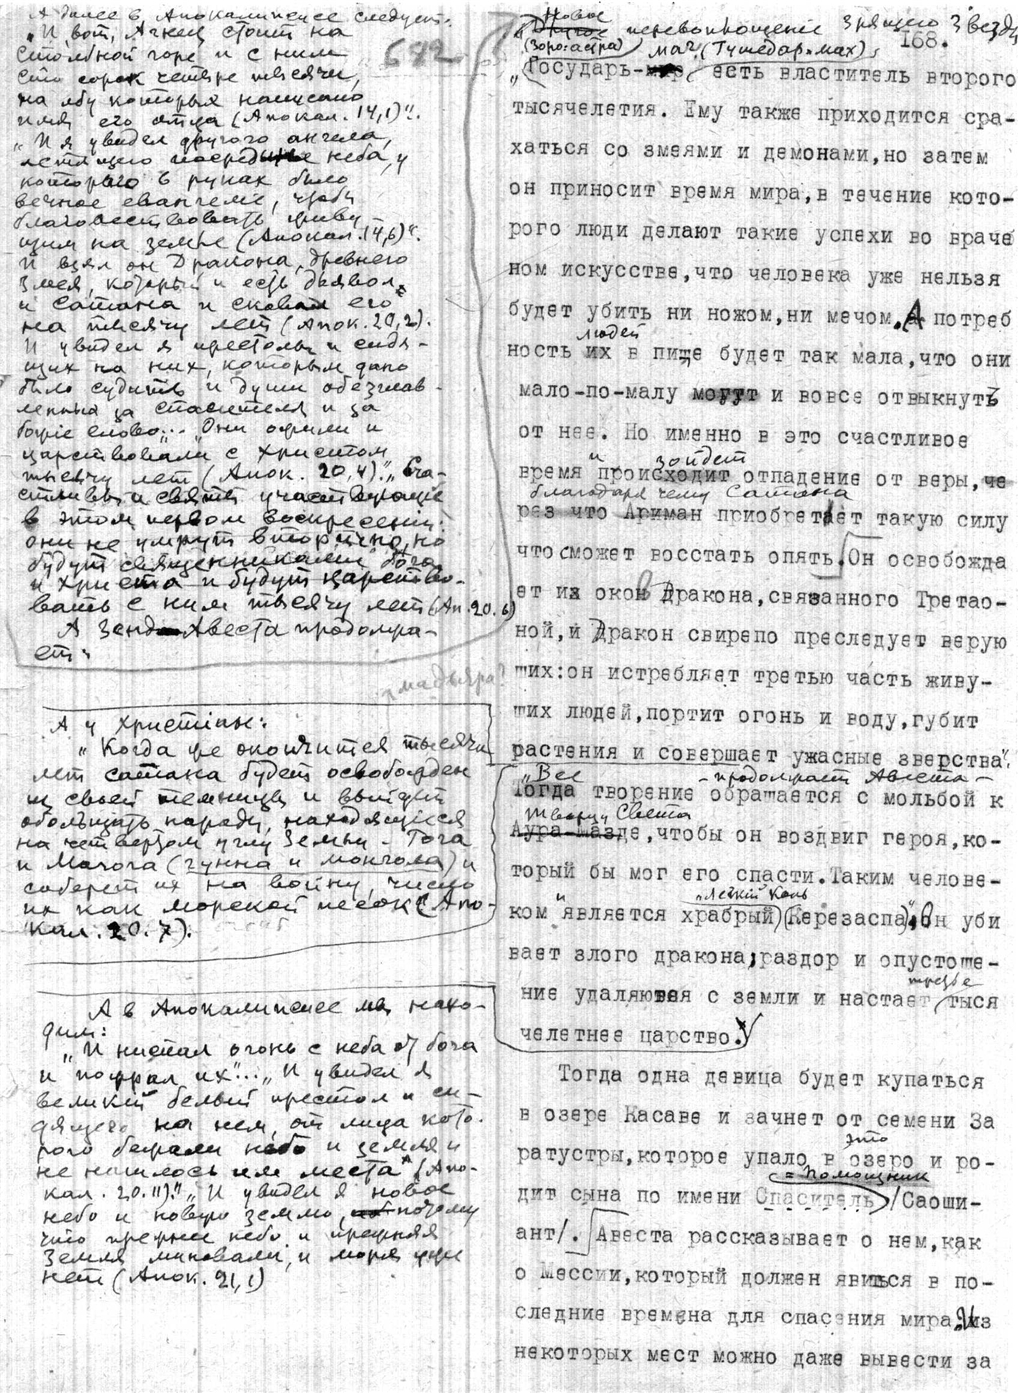 А далее в Апокалипсисе следует:
"И, вот, Агнец стоит на
столбной горе и с ним
сто сорок четыре тысячи,
на лбу которых написано
имя его отца (Апокал. 14,1)".
"И я увидел другого ангела,
летящего посредине неба, у
которого в руках было
вечное евангелие, чтобы
благовествовать живу-
щим на земле (Апокал. 14,6)".
И взял он Дракона, древнего
Змея, который и есть дьявол
и сатана и сковал его
на тысячу лет (Апок. 20,2).
И увидел я престолы и сидя-
щих на них, которым дано
было судить и души обезглав-
ленных за
божие слово... "Они ожили и
царствовали с Христом
тысячу лет (Апок. 20,4)". "Сча-
стливы и святы участвующие
в этом первом воскресении:
они не умрут вторично, но
будут священниками бога
и Христа и будут царство-
вать с ним тысячу лет (Ап. 20.6)
А Зенд-Авеста продолжа-
ет:
682
мадьяра?
А у Христиан:
"Когда же окончится тысяча
лет сатана будет освобожден
из своей темницы и выйдет
обольщать народы, находящиеся
на четвертом углу Земли - Гога
и Магога (гунна и монгола) и
соберет их на войну, число
их как морской песок" (Апо-
кал. 20.7).
А в Апокалипсисе мы нахо-
дим:
"И ниспал огонь с неба от бога
и пожрал их"... "И увидел я
великий белый престол и си-
дящего на нем, от лица кото-
рого бежали небо и земля и
не нашлось им места" (Апо-
кал. 20.11)". "И увидел я новое
небо и новую землю, потому
что прежнее небо и прежняя
Земля миновали, и моря уже
нет (Апок. 21,1)
168.
Новое
перевоплощение Зрящего Звезды
(Зороастра) маг (Тушедар-мах),
"Государь- есть властитель второго
тысячелетия. Ему также приходится сра-
жаться со змеями и демонами,но затем
он приносит время мира,в течение кото-
рого люди делают такие успехи во враче
ном искусстве,что человека уже нельзя
будет убить ни ножом,ни мечом. А потреб
людей
ность их в пище будет так мала,что они
мало-по-малу могут и вовсе отвыкнуть
от нее. Но именно в это счастливое
и зойдет
время происходит отпадение от веры,че
благодаря чему Сатана
рез что Ариман приобретает такую силу
что сможет восстать опять. Он освобожда
ет из оков Дракона,связанного Третао-
ной,и Дракон свирепо преследует верую
щих:он истребляет третью часть живу-
щих людей,портит огонь и воду,губит
растения и совершает ужасные зверства".
"Все - продолжает Авеста -
Тогда творение обращается с мольбой к
творцу Света
Аура-Мазде,чтобы он воздвиг героя,ко-
торый бы мог его спасти.Таким челове-
"Легкий Конь
ком является храбрый (Керезаспа), он уби
вает злого дракона;раздор и опустоше-
третье
ние удаляются с земли и настает тыся
челетнее царство.
Тогда одна девица будет купаться
в озере Касаве и зачнет от семени За
это
ратустры,которое упало в озеро и ро-
= Помощник
дит сына по имени Спаситель /Саоши-
ант/. Авеста рассказывает о нем,как
о Мессии,который должен явиться в по-
следние времена для спасения мира. Из
некоторых мест можно даже вывести за